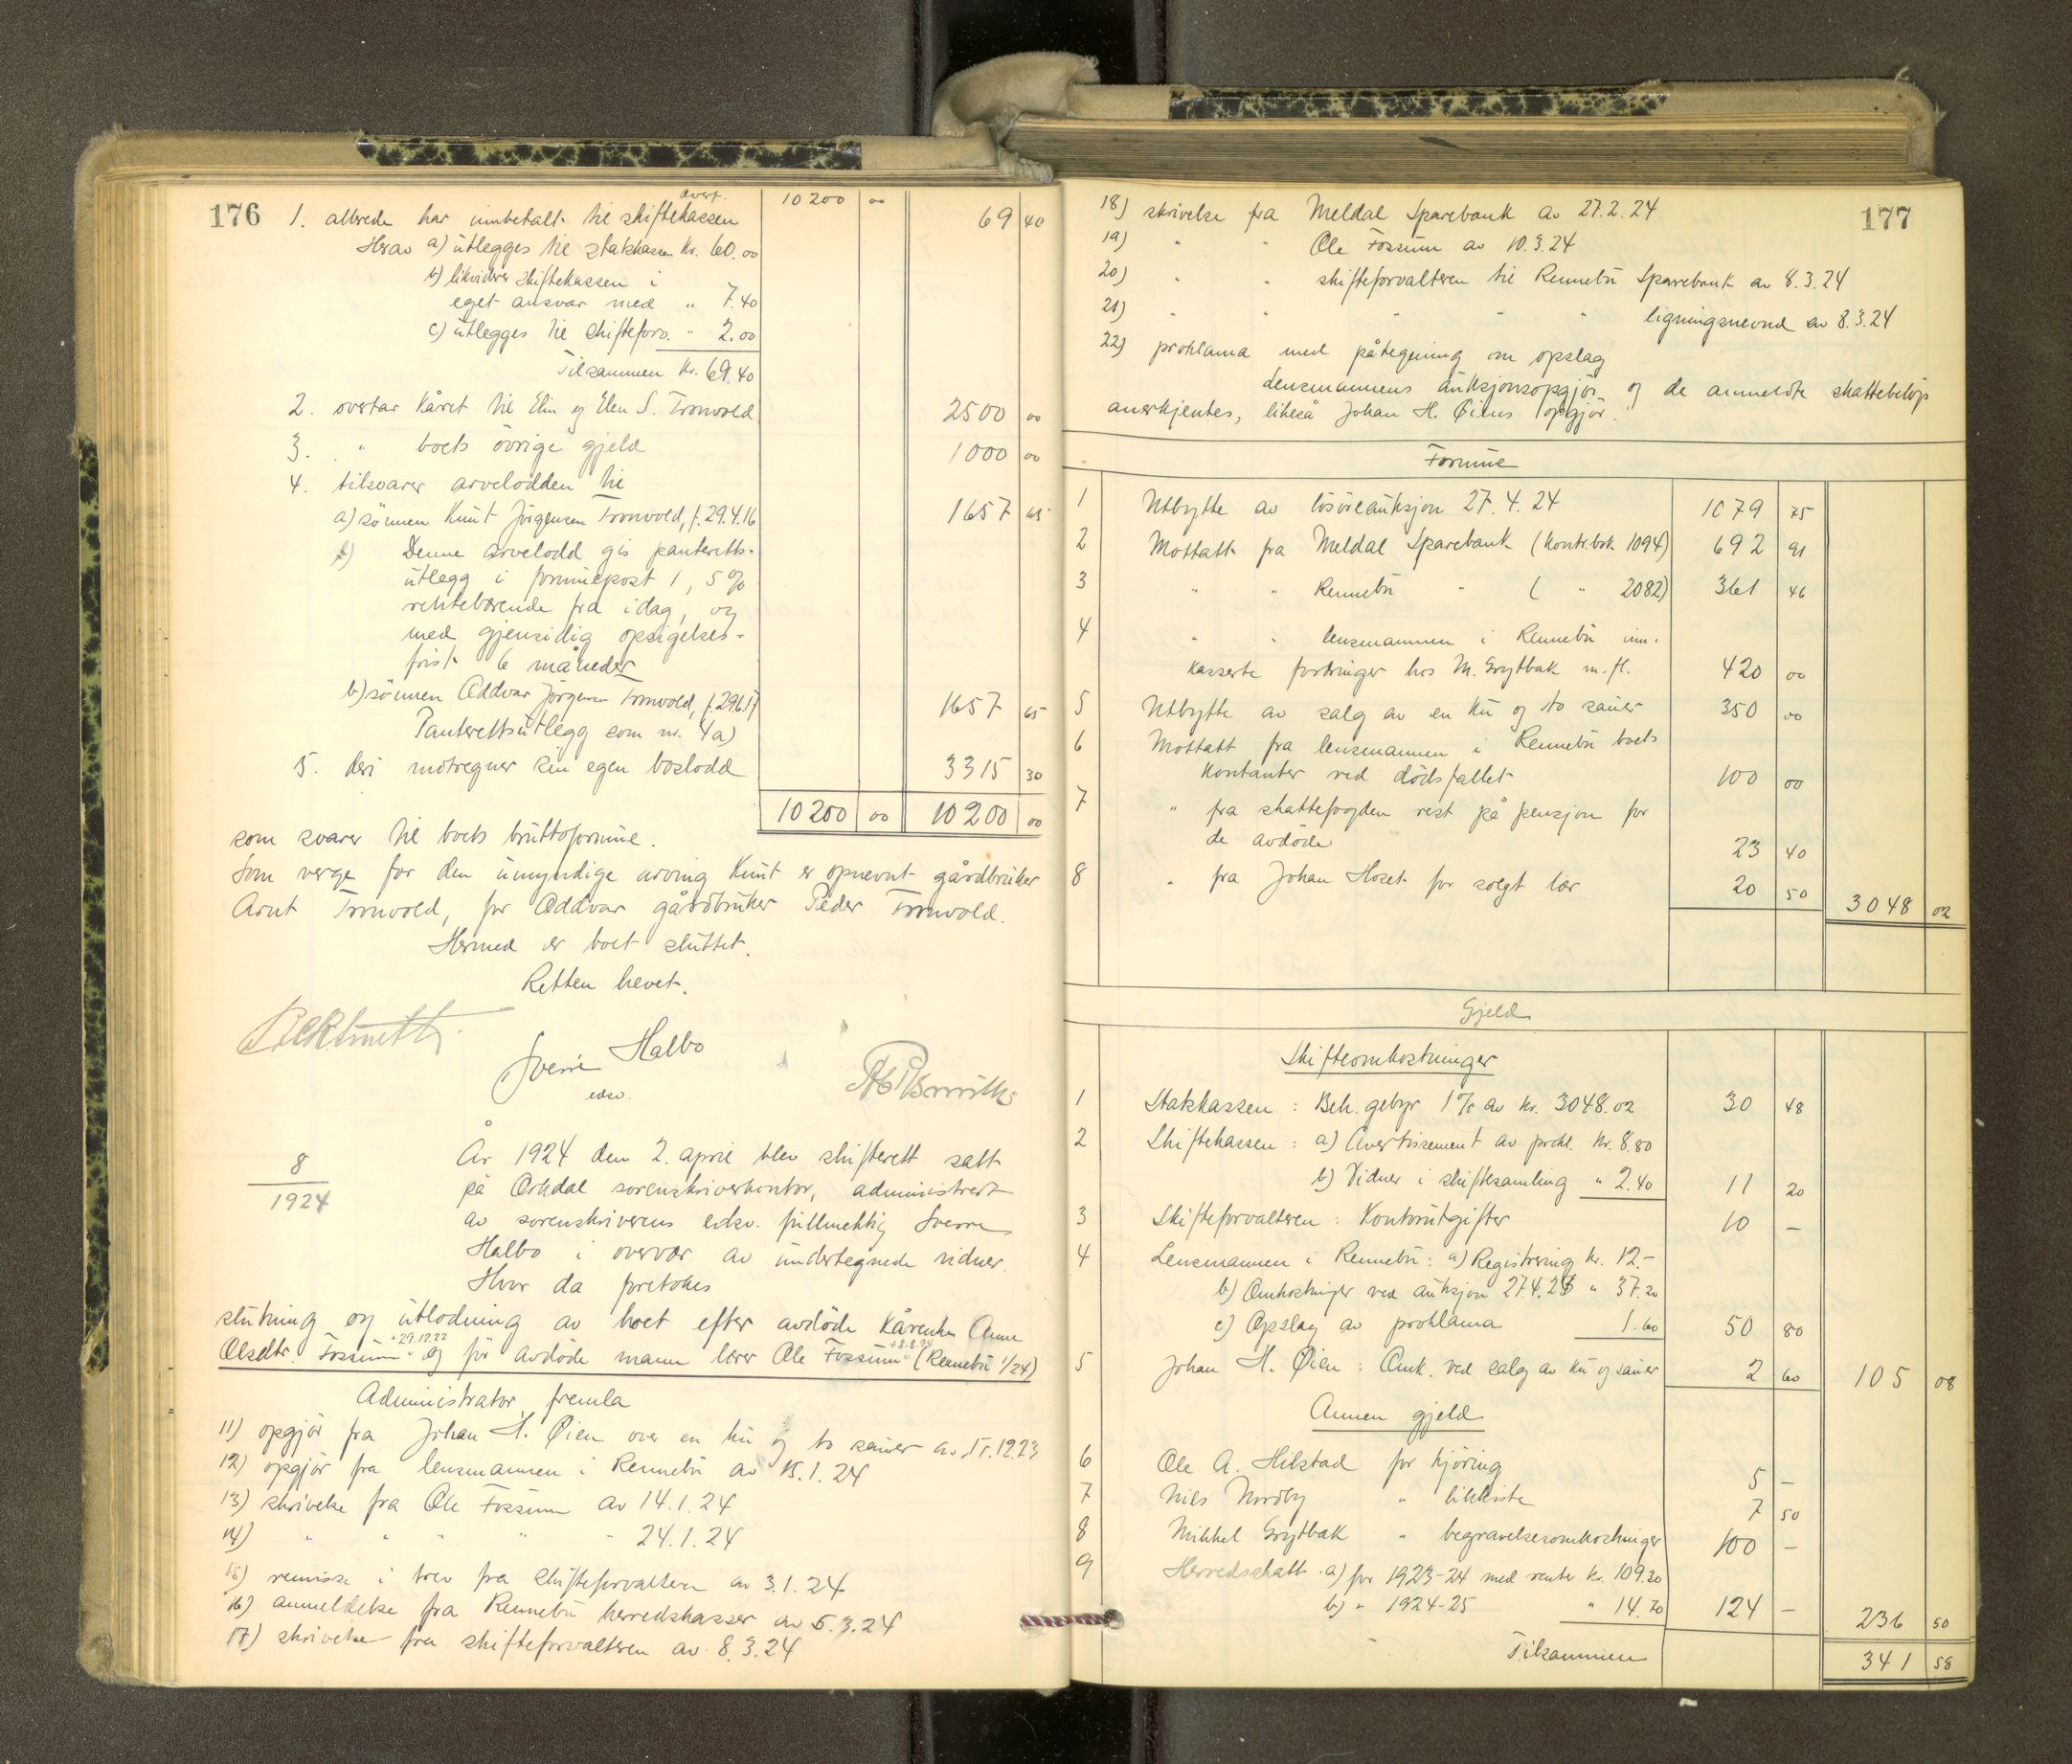 176
overf. 10200 00
1. allerede har innbetalt til skiftekassen 69 40
Herav a) utlegges til stakkassen kr. 60.00
b) likviderer skiftekassen i
eget ansvar med " 7.40
c) utlegges til skifteforv. " 2.00
Tilsammen kr. 69.40
2. overtar kåret til Elin og Elen S. Tronvold 2500 00
3. " boets övrige gjeld 1000 00
4. tilsvarer arvelodden til
a) sönnen Knut Jörgensen Tronvold, f. 29.4.16 1657 65
Denne arvelodd gis panteretts-
utlegg i formuepost 1, 5%
rentebærende fra idag, og
med gjensidig opsigelses-
frist 6 måneder
b) sönnen Oddvar Jörgensen Tronvold, f. 29.6.17 1657 65
Panterettsutlegg som nr. 4a)
5. heri motregner sin egen boslodd 3315 30
10200 00 10200 00
som svarer til boets bruttoformue.
Som verge for den umyndige arving Knut er opnevnt gårdbruker
Arnt Tronvold, for Oddvar gårdbruker Peder Tronvold.
Hermed er boet sluttet.
Retten hevet.
Sverre Halbo
edsv.
8
1924
År 1924 den 2. april blev skifterett satt
på Orkdal sorenskriverkontor, administrert
av sorenskriverens edsv. fullmektig Sverre
Halbo i overvær av undertegnede vidner.
Hvor da foretokes
slutning og utlodning av boet efter avdöde kårenke Anne
Olsdtr. Fossum + 29.12.22 og för avdöde mann lærer Ole Fossum (Rennebu 1/24)
Administrator fremla
11) opgjör fra Johan H. Øien over en ku og to sauer av 15.12.23
12) opgjör fra lensmannen i Rennebu av 15.1.24
13) skrivelse fra Ole Fossum av 14.1.24
14) " " " " 24.1.24
15) remisse i brev fra skifteforvalteren av 3.1.24
16) anmeldelse fra Rennebu herredskasser av 5.3.24
17) skrivelse fra skifteforvalteren av 8.3.24
177
18) skrivelse fra Meldal Sparebank av 27.2.24
19) " " Ole Fossum av 10.3.24
20) " " skifteforvalteren til Rennebu Sparebank av 8.3.24
21) " " " " " ligningsnevnd av 8.3.24
22) proklama med påtegning om opslag
Lensmannens auksjonsopgjör og de anmeldte skattebelöp
anerkjentes, likeså Johan H. Øiens opgjör.
Formue
1 Utbytte av lösöreauksjon 27.4.24 1079 75
2 Mottatt fra Meldal Sparebank (kontr.bok 1094) 692 91
3 " " Rennebu " ( " 2082) 361 46
4 " " lensmannen i Rennebu inn-
kasserte fordringer hos M. Grytbak m. fl. 420 00
5 Utbytte av salg av en ku og to sauer 350 00
6 Mottatt fra lensmannen i Rennebu boets
kontanter ved dödsfallet 100 00
7 " fra skattefogden rest på pensjon for
de avdöde 23 40
8 " fra Johan Hoset for solgt lær 20 50 3048 02
Gjeld
Skifteomkostninger
1 Stakkassen: Beh. gebyr 1% av kr. 3048.02 30 48
2 Skiftekassen: a) Avertissement av prokl. kr. 8.80
b) Vidner i skiftesamling " 2.40 11 20
3 Skifteforvalteren: Kontorutgifter 10 —
4 Lensmannen i Rennebu: a) Registrering kr. 12.—
b) Omkostninger ved auksjon 27.4.23 " 37.20
c) Opslag av proklama 1.60 50 80
5 Johan H. Øien: Omk. ved salg av ku og sauer 2 60 105 08
Annen gjeld
6 Ole A. Hilstad for kjöring 5 —
7 Nils Nordby " likkiste 7 50
8 Mikkel Grytbak " begravelsesomkostninger 100 —
9 Herredsskatt a) for 1923-24 med renter kr. 109.30
b) " 1924-25 " 14.70 124 — 236 50
Tilsammen 341 58